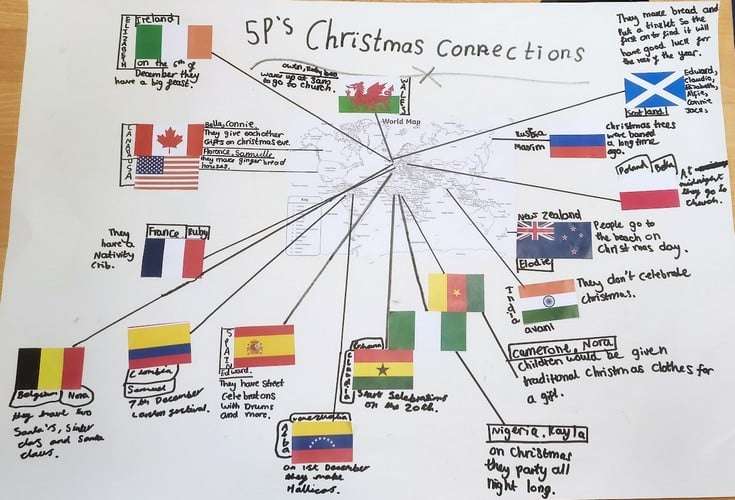 5P's Christmas Connections
ELIZABETH
Ireland
on the 6th of
December they
have a big feast.
wake up at 3am
to go to church.
WALES
They make bread and
Put a tinslet so the
first on to find it will
have good luck for
the rest of the year.
Scotland
Edward,
Claudia,
Elizabeth,
Alfie,
Connie
Jace,
World Map
CANADA
Bella, Connie,
They give each other
Gifts on christmas eve.
USA
Florence, Samuelle
they make ginger bread
houses.
Russia
Maxim
christmas trees
were banned
a long time
ago.
Poland Bella
At
midnight
they go to
Church.
France Ruby
They
have a
Nativity
Crib.
New Zealand
Elodie
People go to
the beach on
Christmas day.
India
avani
They don't celebrate
Christmas.
Belgium Nora
they have two
Santa's, Sinter
clays and Santa
claus.
Clombia
Samuel
7th December
Lantern festival.
SPAIN
Edward.
They have street
Celebrations
with Drums
and more.
Ghana
Claudia
Start Celebrations
on the 20th.
venezuelia
on 1st December
they make
Hallicas.
cameront, Nora
Children would be given
traditional Christmas clothes for
a gift.
Nigeria, Kayla
on Christmas
they party all
night long.